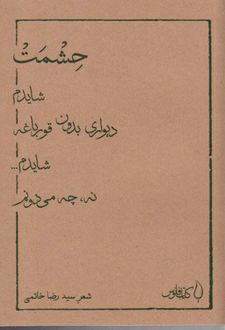 حِشْمَتْ
شایدم
دیواری بدون قورباغه
شایدم...
نه، چه می‌دونم
شعر سید رضا خاتمی
کتاب فانوس